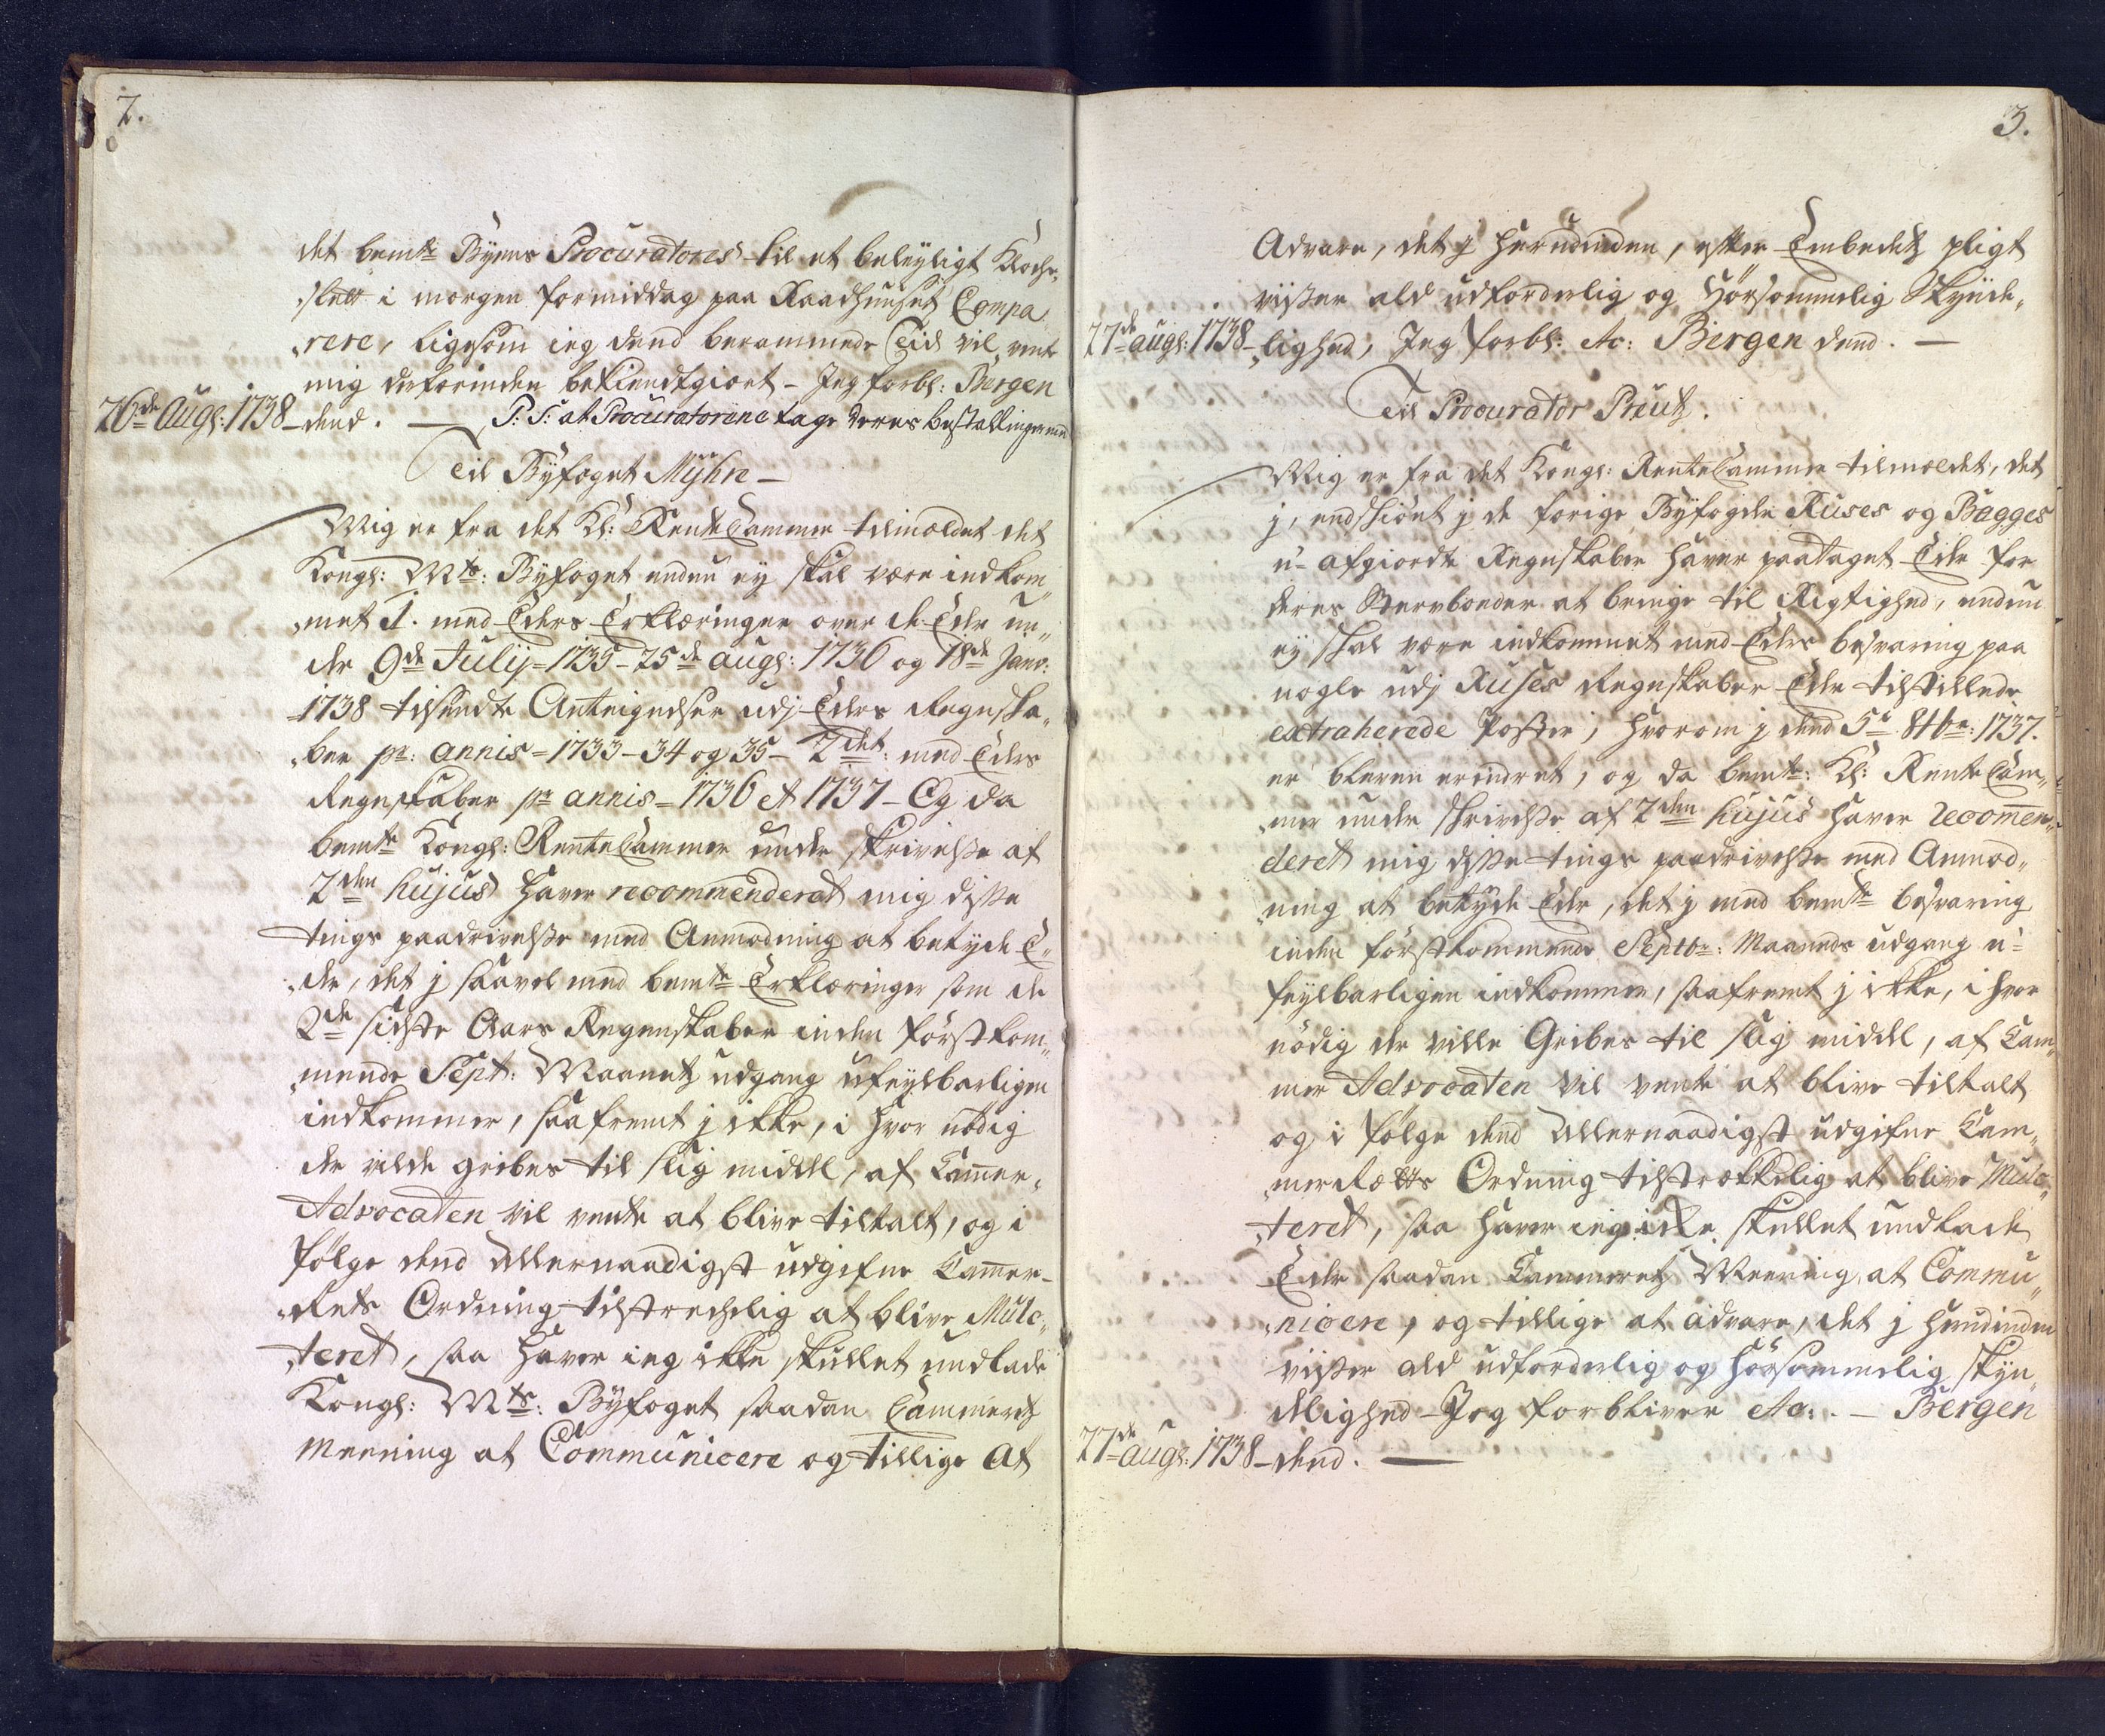 2.
det bemte Byens Procuratores til et beleyligt Kloche,,
slett i morgen formiddag paa Raadhuuset Compa,,
,,rere, ligesom ieg dend berammede Tid vil vente
mig deforinden bekiendtgiort – Jeg forbl: Bergen
26de Augs: 1738 – dend. — P: S: at Procuratorene tage deres bestallinger med
Til Byfoget Myhre –
Mig er fra det Kl: RenteCammer tilmeldet det
Kongl: Mts: Byfoget endnu ey skal være indkom,,
,,met 1. med Eders Erklæringer over de Eder un,,
der 9de Julij = 1735 – 25de augs: 1736 og 18de Janv:
1738 tilsendte Antegnelser udj Eders Regnska,,
,,ber pr: annis = 1733 – 34 og 35 – 2det: med Eders
Regnskaber pr annis = 1736 et 1737 – Og da
bemte Kongl: RenteCammer under skrivelsse af
2den hujus haver recommenderet mig disse
tings paadrivelsse med Anmodning at betyde E,,
,,der, det j saavel med bemte Erklæringer som de
2de sidste Aars Regenskaber inden förstkom,,
,,mende Sept: Maanetz udgang ufeylbarligen
indkommer, saafremt j ikke, i hvor nödig
der vilde gribes til slig middel, af Cammer,,
Advocaten vil vente at blive tiltalt, og i
fölge dend Allernaadigst udgifne Cammer-
,,Rets Ordning tilstrechelig at blive Mulc,,
,,teret, saa haver ieg ikke skullet undlade
Kongl: Mts: Byfoget saadan Cammeretz
Meening at Communicere og tillige at
3.
Advare, det j herudinden, efter Embedetz pligt
viisser ald udforderlig og Hörsommelig Skynde,,
27de augs: 1738 – ,,lighed, Jeg forbl: &c: Bergen dend. —
Til Procurator Preutz.
Mig er fra det Kongl: RenteCammer tilmeldet, det
j, endskiönt j de forige Byfogder Ruses og Bagges
u-afgiordte Regnskaber haver paataget Eder for
deres Sterboeder at bringe til Rigtighed, endnu
ey skal være indkommet med Eders besvaring paa
nogle udj Ruses Regnskaber Eder tilstillede
extraherede Poster, hvorom j dend 5te 8tbr: 1737.
er bleven erindret, og da bemte: Kl: RenteCam,,
,,mer under skrivelsse af 2den hujus haver recommen,,
deret mig disse tings paadrivelsse med Anmod,,
,,ning at betyde Eder, det j med bemte besvaring
inden förstkommende Septbr: Maaneds udgang u-
feylbarligen indkommer, saafremt j ikke, i hvor
nödig der ville Gribes til slig middel, af Cam,,
mer Advocaten vil vente at blive tiltalt
og i fölge dend Allernaadigst udgifne Cam,,
,,merRætts Ordning tilstrækkelig at blive Mulc,,
,,teret, saa haver ieg icke skullet undlade
Eder saadan Cammeretz Meening at Commu,,
,,nicere, og tillige at advare, det j herudinden
viisser ald udforderlig og hörsommelig skyn,,
delighed – Jeg forbliver &c: . – Bergen
27de augs: 1738 – dend. —